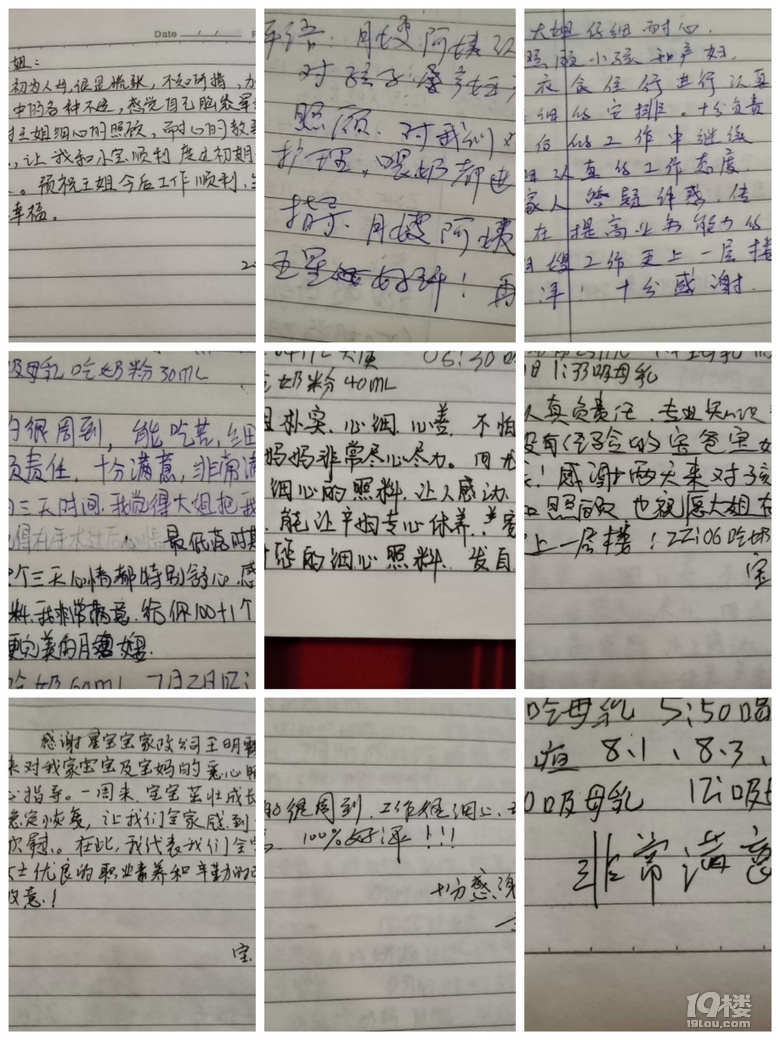 Date
姐：
初为人母，很是慌张，不知所措，
中的各种不适，感觉自己脑袋
王姐细心的照顾，耐心的教
，让我和小宝顺利度过初期
。预祝王姐今后工作顺利，
幸福。
评语：月嫂阿姨
对孩子
照顾．对我们
护理，喂奶都
指导．月嫂阿姨
五星好评！再
大姐仔细耐心．
照顾小孩和产妇．
衣食住行进行认真
细的安排。十分负责
后的工作中继续
认真的工作态度．
家人答疑
在提高业务能力的
嫂工作更上一层楼
十分感谢．
吸母乳吃奶粉30ML
的很周到，能吃苦，细
负责任，十分满意，非常满
三天时间．我觉得大姐把我
最低落时期
个三天心情都特别舒心，感
料．我非常满意．给你100+1个
更完美的月嫂．
吃奶60ML 7月2日12:
06:30
奶粉40ML
朴实．心细．心善．不怕
妈妈非常尽心尽力。
细心的照料．让人感动．
能让产妇专心休养．
的细心照料．发自
日1:33吸母乳
认真负责任．专业知识
没有经验的宝爸宝
！感谢两天来对孩
照顾 也祝愿大姐
上一层楼！22:06吃奶
宝
感谢星宝宝家政公司王明
来对我家宝宝及宝妈的悉心照
心指导。一周来，宝宝茁壮成长
稳定恢复，让我们全家感到
欣慰。在此，我代表我们全
女士优良的职业素养和辛勤的
敬意！
宝
的很周到．工作很细心．
100%好评！！！
十分感谢
吃母乳 5:50喝
疸 8.1、8.3、
吸母乳 12:吸
非常满意
19楼
19lou.com